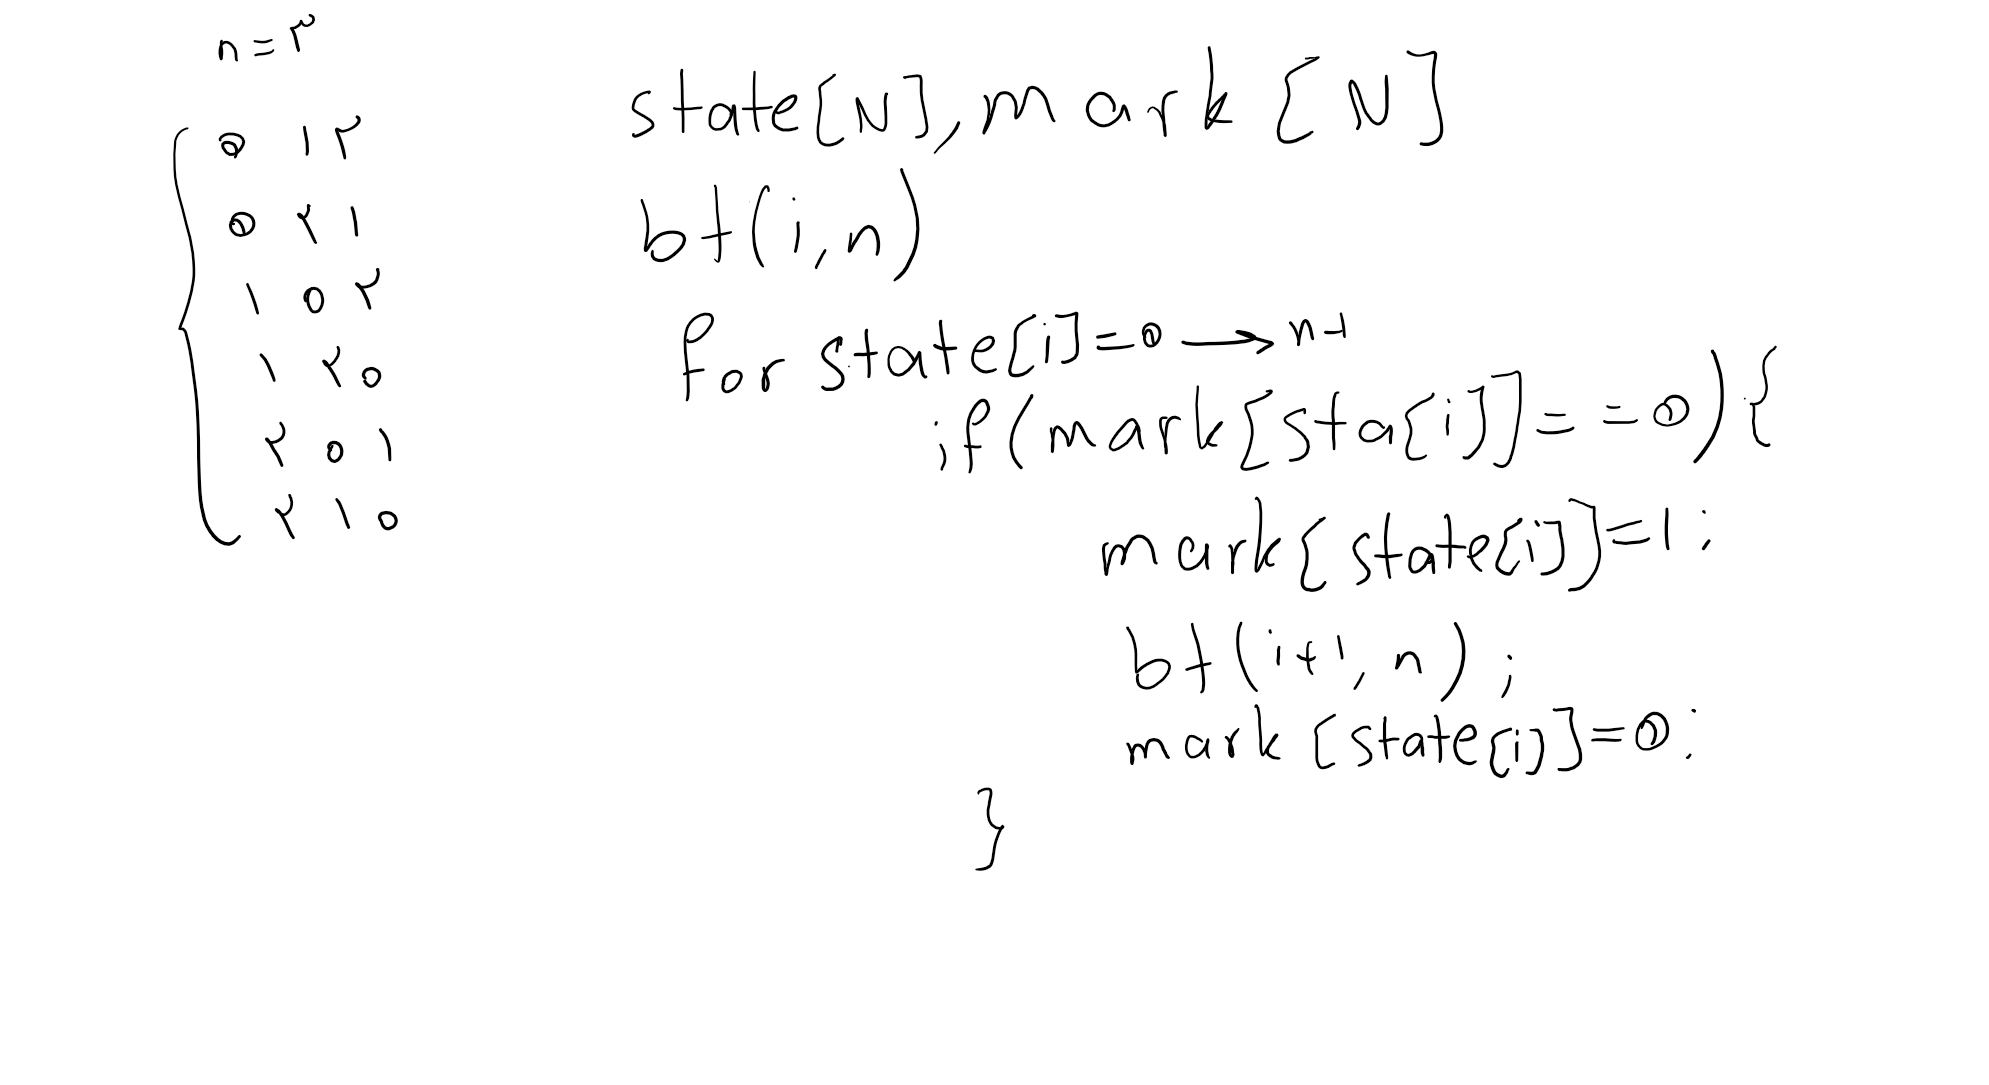 n = ۳
0 ۱ ۲
0 ۲ ۱
۱ 0 ۲
۱ ۲ 0
۲ 0 ۱
۲ ۱ 0
state[N], mark[N]
bt(i, n)
for state[i]=0 → n-1
if(mark[sta[i]]==0){
mark[state[i]]=1;
bt(i+1, n);
mark[state[i]]=0;
}